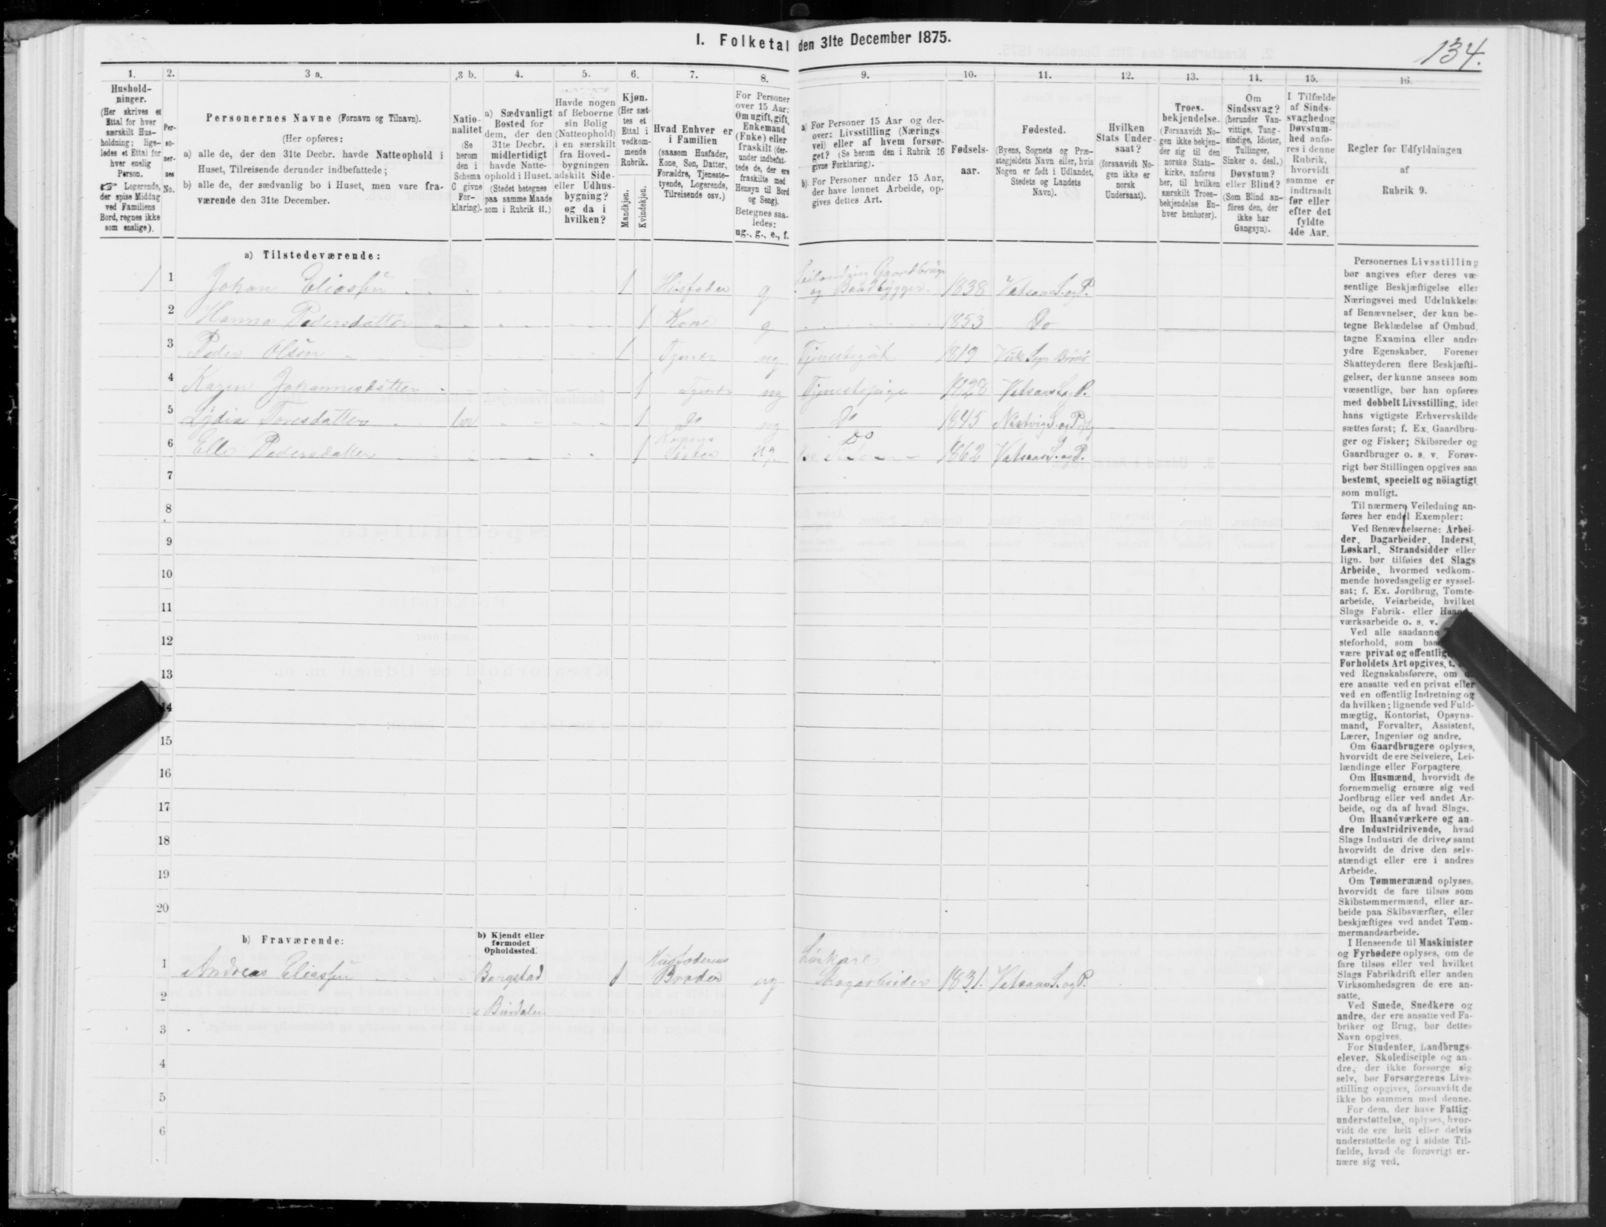 134.
1. Folketal den 31te December 1875.
1. 2. 3 a. 3 b. 4. 5. 6. 7. 8. 9. 10. 11. 12. 13. 14. 15. 16.
Hushold-
ninger.
(Her skrives et
Ettal for hver
særskilt Hus-
holdning; lige-
ledes et Ettal for
hver enslig
Person.
☞ Logerende,
der spise Middag
ved Familiens
Bord, regnes ikke
som enslige).
Per-
so-
ner-
nes
No.
Personernes Navne (Fornavn og Tilnavn).
(Her opføres:
a) alle de, der den 31te Decbr. havde Natteophold i
Huset, Tilreisende derunder indbefattede;
b) alle de, der sædvanlig bo i Huset, men vare fra-
værende den 31te December.
Natio-
nalitet
(Se
herom
den i
Schema
C givne
For-
klaring).
a) Sædvanligt
Bosted for
dem, der den
31te Decbr.
midlertidigt
havde Natte-
ophold i Huset.
(Stedet betegnes
paa samme Maade
som i Rubrik 11.)
Havde nogen
af Beboerne
sin Bolig
(Natteophold)
i en særskilt
fra Hoved-
bygningen
adskilt Side-
eller Udhus-
bygning?
og da i
hvilken?
Kjøn.
(Her sæt-
tes et
Ettal i
vedkom-
mende
Rubrik.
Mandkjøn.
Kvindekjøn.
Hvad Enhver er
i Familien
(saasom Husfader,
Kone, Søn, Datter,
Forældre, Tjeneste-
tyende, Logerende,
Tilreisende osv.)
For Personer
over 15 Aar:
Om ugift, gift,
Enkemand
(Enke) eller
fraskilt (der-
under indbefat-
tede de, der ere
fraskilte med
Hensyn til Bord
og Seng).
Betegnes saa-
ledes:
ug., g., e., f.
a) For Personer 15 Aar og der-
over: Livsstilling (Nærings-
vei) eller af hvem forsør-
get? (Se herom den i Rubrik 16
givne Forklaring).
b) For Personer under 15 Aar,
der have lønnet Arbeide, op-
gives dettes Art.
Fødsels-
aar.
Fødested.
(Byens, Sognets og Præ-
stegjeldets Navn eller, hvis
Nogen er født i Udlandet,
Stedets og Landets
Navn).
Hvilken
Stats Under-
saat?
(forsaavidt No-
gen ikke er
norsk
Undersaat).
Troes-
bekjendelse.
(Forsaavidt No-
gen ikke bekjen-
der sig til den
norske Stats-
kirke, anføres
her, til hvilken
særskilt Troes-
bekjendelse En-
hver henhører).
Om
Sindssvag?
(herunder Van-
vittige, Tung-
sindige, Idioter,
Tullinger,
Sinker o. desl.)
Døvstum?
eller Blind?
(Som Blind an-
føres den, der
ikke har
Gangsyn).
I Tilfælde
af Sinds-
svaghed og
Døvstum-
hed anfø-
res i denne
Rubrik,
hvorvidt
samme er
indtraadt
før eller
efter det
fyldte
4de Aar.
Regler for Udfyldningen
af
Rubrik 9.
a) Tilstedeværende:
1 1 Johan Eliassen 1 Husfader g og Baadbygger 1838 Vefsens S. og P.
2 Hanna Pedersdatter 1 Kone g 1853 Do
3 Peder Olsen 1 Tjener ug 1819
4 Karen Johannesdatter 1 ug Tjenestepige Vefsens S. og P.
5 Lydia Toresdatter 1 Do ug Do 1845
6 Elli Pedersdatter 1 Konens Søster ug Do 1862 Vefsens S. og P.
7
8
9
10
11
12
13
14
15
16
17
18
19
20
b) Fraværende:
b) Kjendt eller
formodet
Opholdssted.
1 Andreas Eliassen Borgstad 1 Husfaderens Broder ug Skogarbeider 1831. Vefsens S. og P.
2 i Bindalen
3
4
5
6
Personernes Livsstilling
bør angives efter deres væ-
sentlige Beskjæftigelse eller
Næringsvei med Udelukkelse
af Benævnelser, der kun be-
tegne Beklædelse af Ombud,
tagne Examina eller andre
ydre Egenskaber. Forener
Skatteyderen flere Beskjæfti-
gelser, der kunne ansees som
væsentlige, bør han opføres
med dobbelt Livsstilling, idet
hans vigtigste Erhvervskilde
sættes først; f. Ex. Gaardbru-
ger og Fisker; Skibsreder og
Gaardbruger o. s. v. Forøv-
rigt bør Stillingen opgives saa
bestemt, specielt og nøiagtigt
som muligt.
Til nærmere Veiledning an-
føres her endel Exempler:
Ved Benævnelserne: Arbei-
der, Dagarbeider, Inderst,
Løskarl, Strandsidder eller
lign. bør tilføies det Slags
Arbeide, hvormed vedkom-
mende hovedsagelig er syssel-
sat; f. Ex. Jordbrug, Tomte-
arbeide, Veiarbeide, hvilket
Slags Fabrik- eller Haand-
værksarbeide o. s. v.
Ved alle saadanne
steforhold, som baa
være privat og offentlig
Forholdets Art opgives, t.
ved Regnskabsførere, om
ere ansatte ved en privat eller
ved en offentlig Indretning og
da hvilken; lignende ved Fuld-
mægtig, Kontorist, Opsyns-
mand, Forvalter, Assistent,
Lærer, Ingeniør og andre.
Om Gaardbrugere oplyses,
hvorvidt de ere Selveiere, Lei-
lændinge eller Forpagtere.
Om Husmænd, hvorvidt de
fornemmelig ernære sig ved
Jordbrug eller ved andet Ar-
beide, og da af hvad Slags.
Om Haandværkere og an-
dre Industridrivende, hvad
Slags Industri de drive, samt
hvorvidt de drive den selv-
stændigt eller ere i andres
Arbeide.
Om Tømmermænd oplyses,
hvorvidt de fare tilsøs som
Skibstømmermænd, eller ar-
beide paa Skibsværfter, eller
beskjæftiges ved andet Tøm-
mermandsarbeide.
I Henseende til Maskinister
og Fyrbødere oplyses, om de
fare tilsøs eller ved hvilket
Slags Fabrikdrift eller anden
Virksomhedsgren de ere an-
satte.
Ved Smede, Snedkere og
andre, der ere ansatte ved Fa-
briker og Brug, bør dettes
Navn opgives.
For Studenter, Landbrugs-
elever, Skoledisciple og an-
dre, der ikke forsørge sig
selv, bør Forsørgerens Livs-
stilling opgives, forsaavidt de
ikke bo sammen med denne.
For dem, der have Fattig-
understøttelse, oplyses, hvor-
vidt de ere helt eller delvis
understøttede og i sidste Til-
fælde, hvad de forøvrigt er-
nære sig ved.